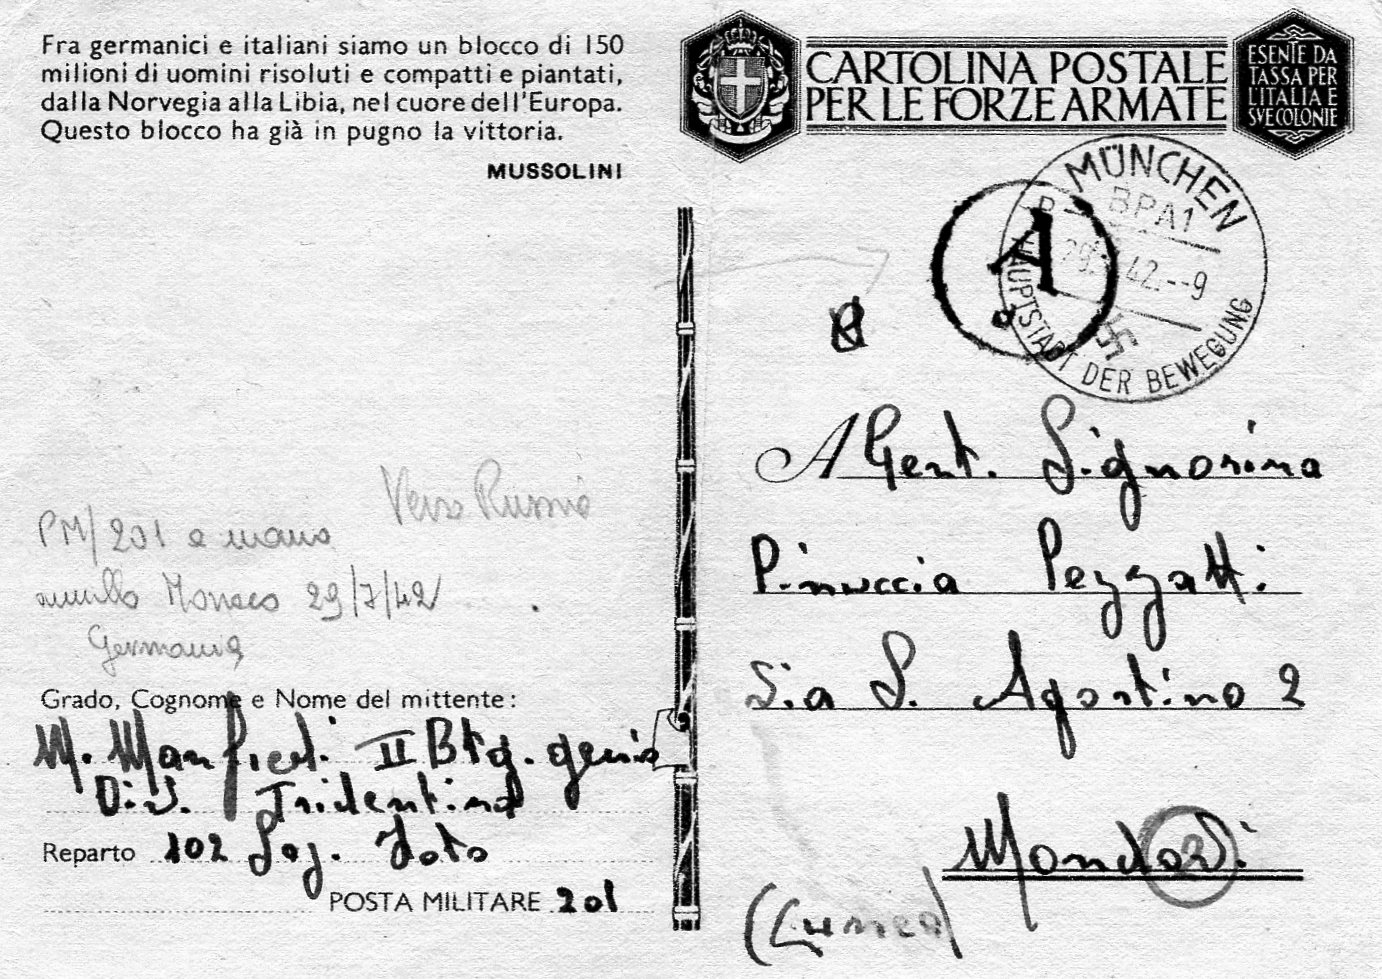 Fra germanici e italiani siamo un blocco di 150
milioni di uomini risoluti e compatti e piantati,
dalla Norvegia alla Libia, nel cuore dell'Europa.
Questo blocco ha già in pugno la vittoria.
MUSSOLINI
CARTOLINA POSTALE
PER LE FORZE ARMATE
ESENTE DA
TASSA PER
L'ITALIA E
SVE COLONIE
MÜNCHEN
BPA1
29. 42.--9
HAUPTSTADT DER BEWEGUNG
A
A Gent. Signorina
Pinuccia Pezzatti
Via S. Agostino 2
Mondovi
2
(Cuneo)
Verso Russia
PM/201 a mano
annullo Monaco 29/7/42
Germania
Grado, Cognome e Nome del mittente:
M. Manfredi II Btg. genio
Div. Tridentina
Reparto 102 Foto
POSTA MILITARE 201